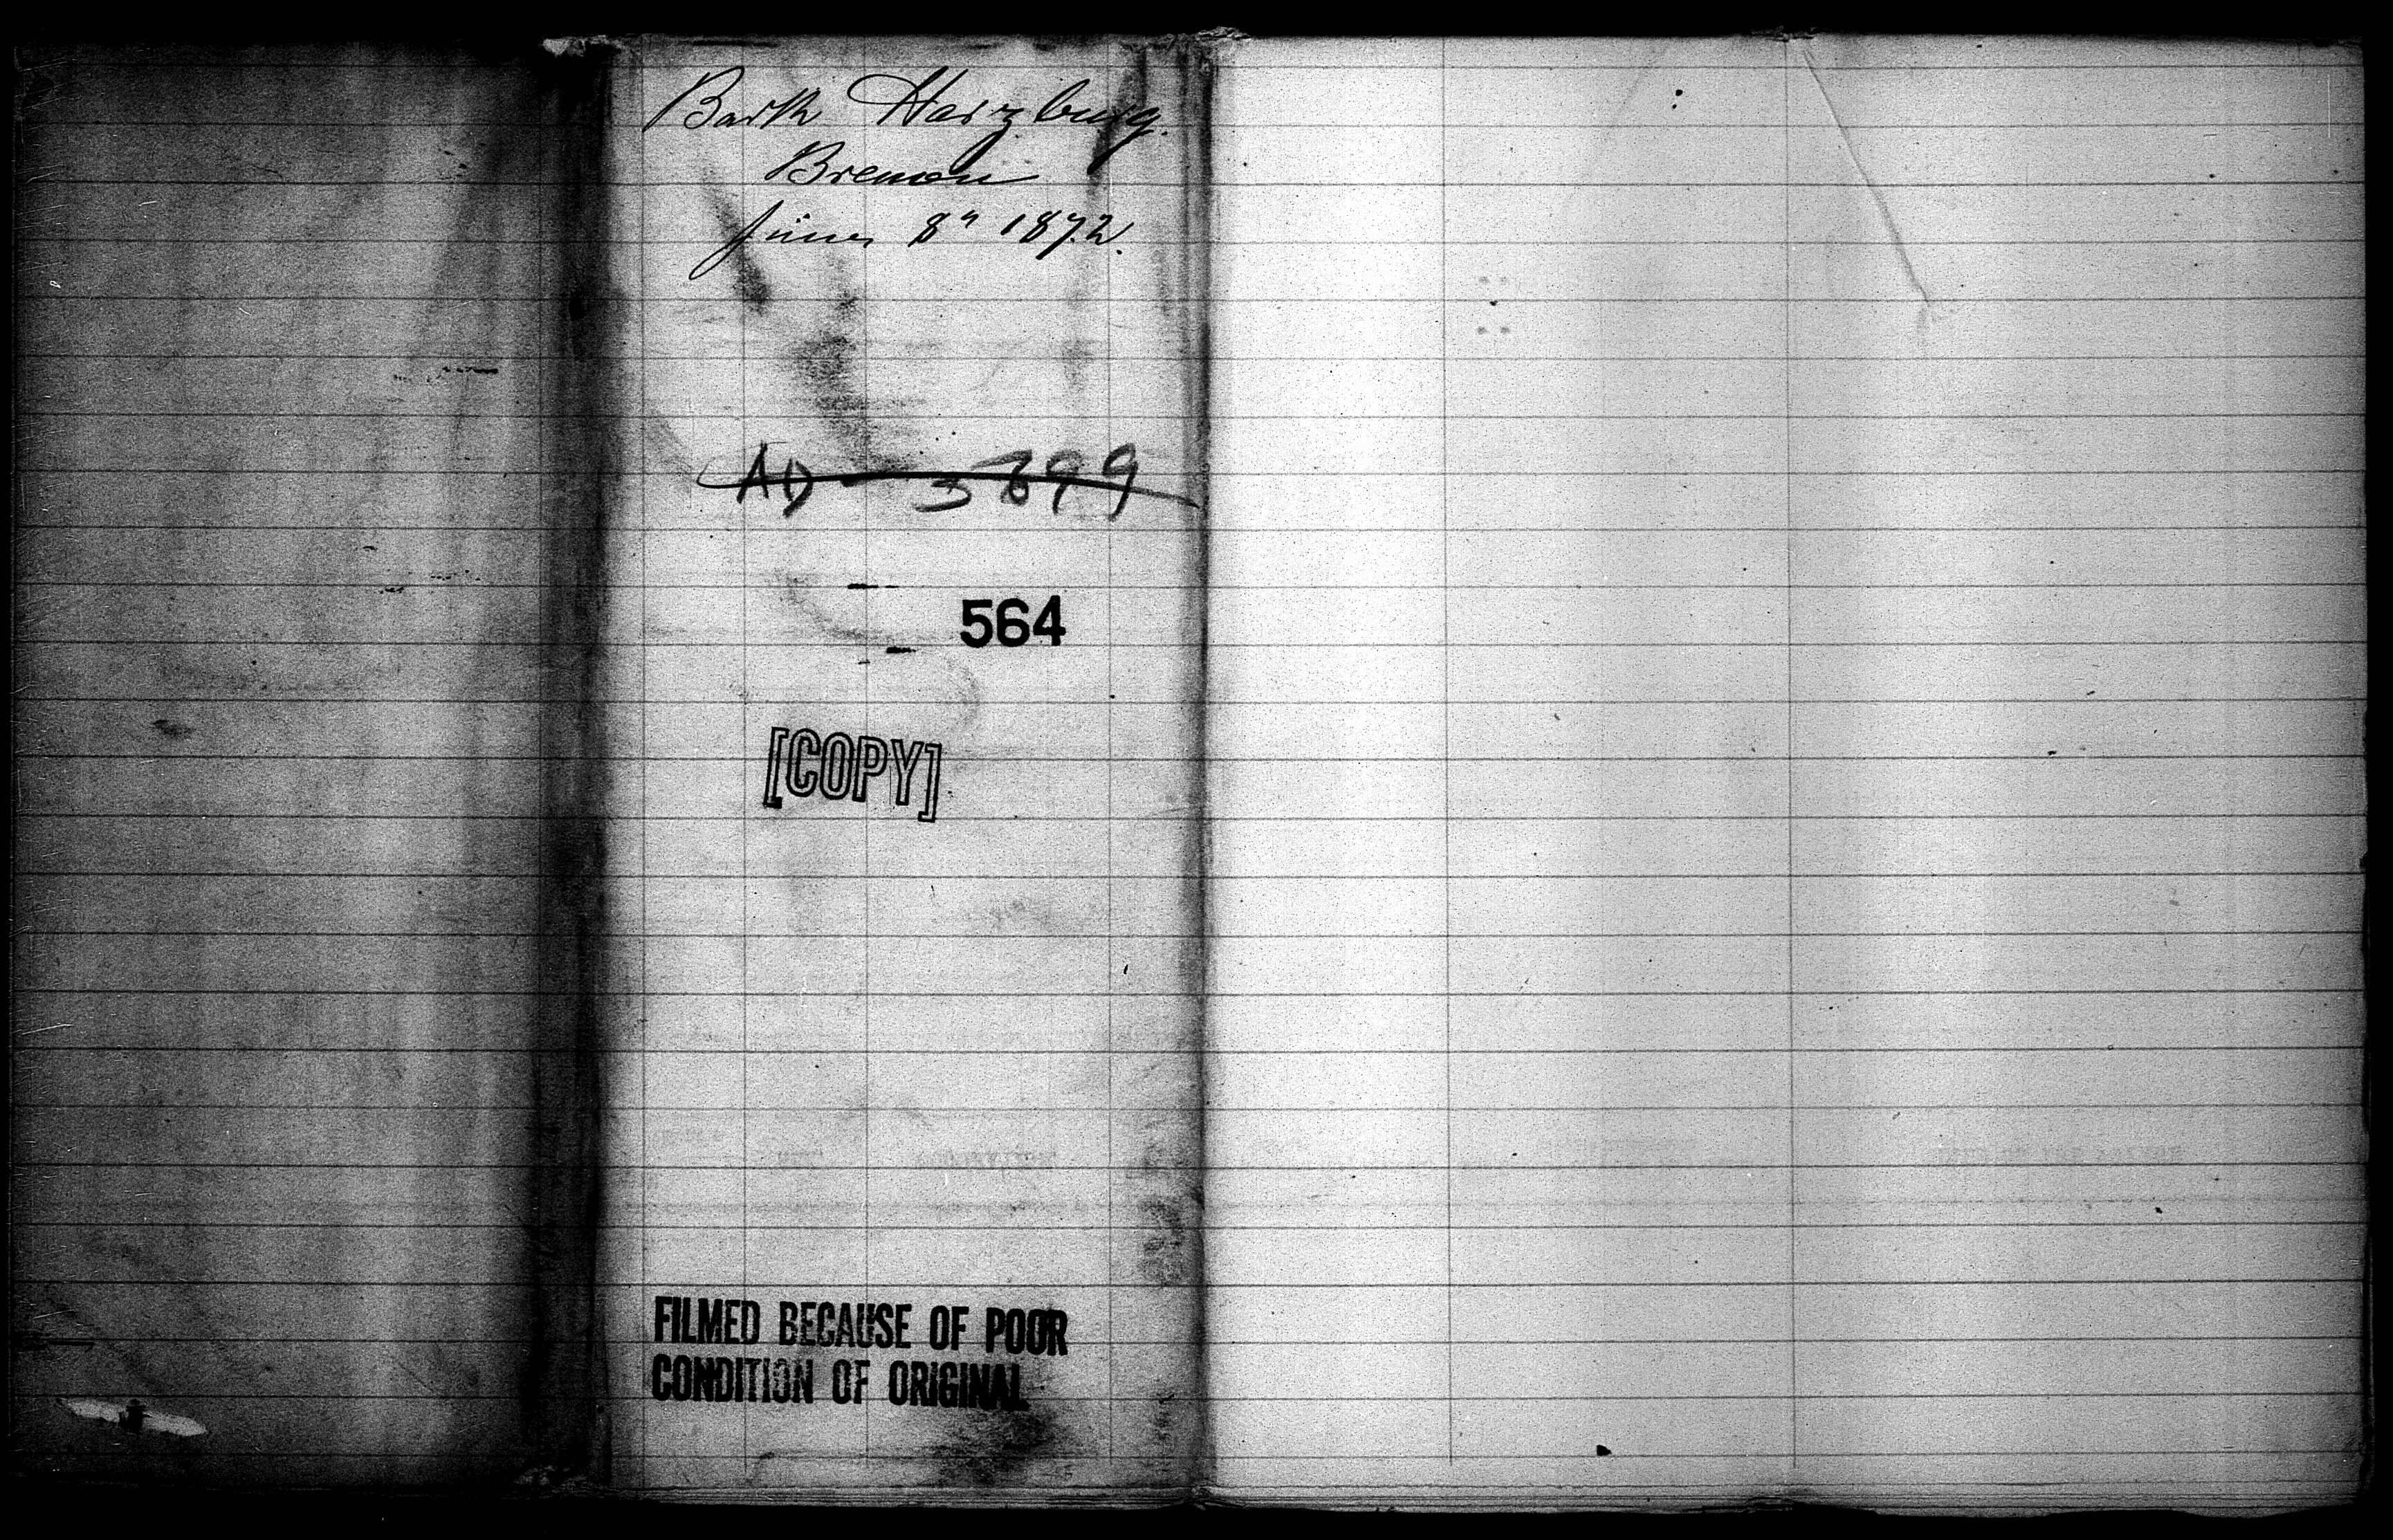 Bark Harzburg.
Bremen
June 8" 1872.
AD - 3699
564
[COPY]
FILMED BECAUSE OF POOR
CONDITION OF ORIGINAL